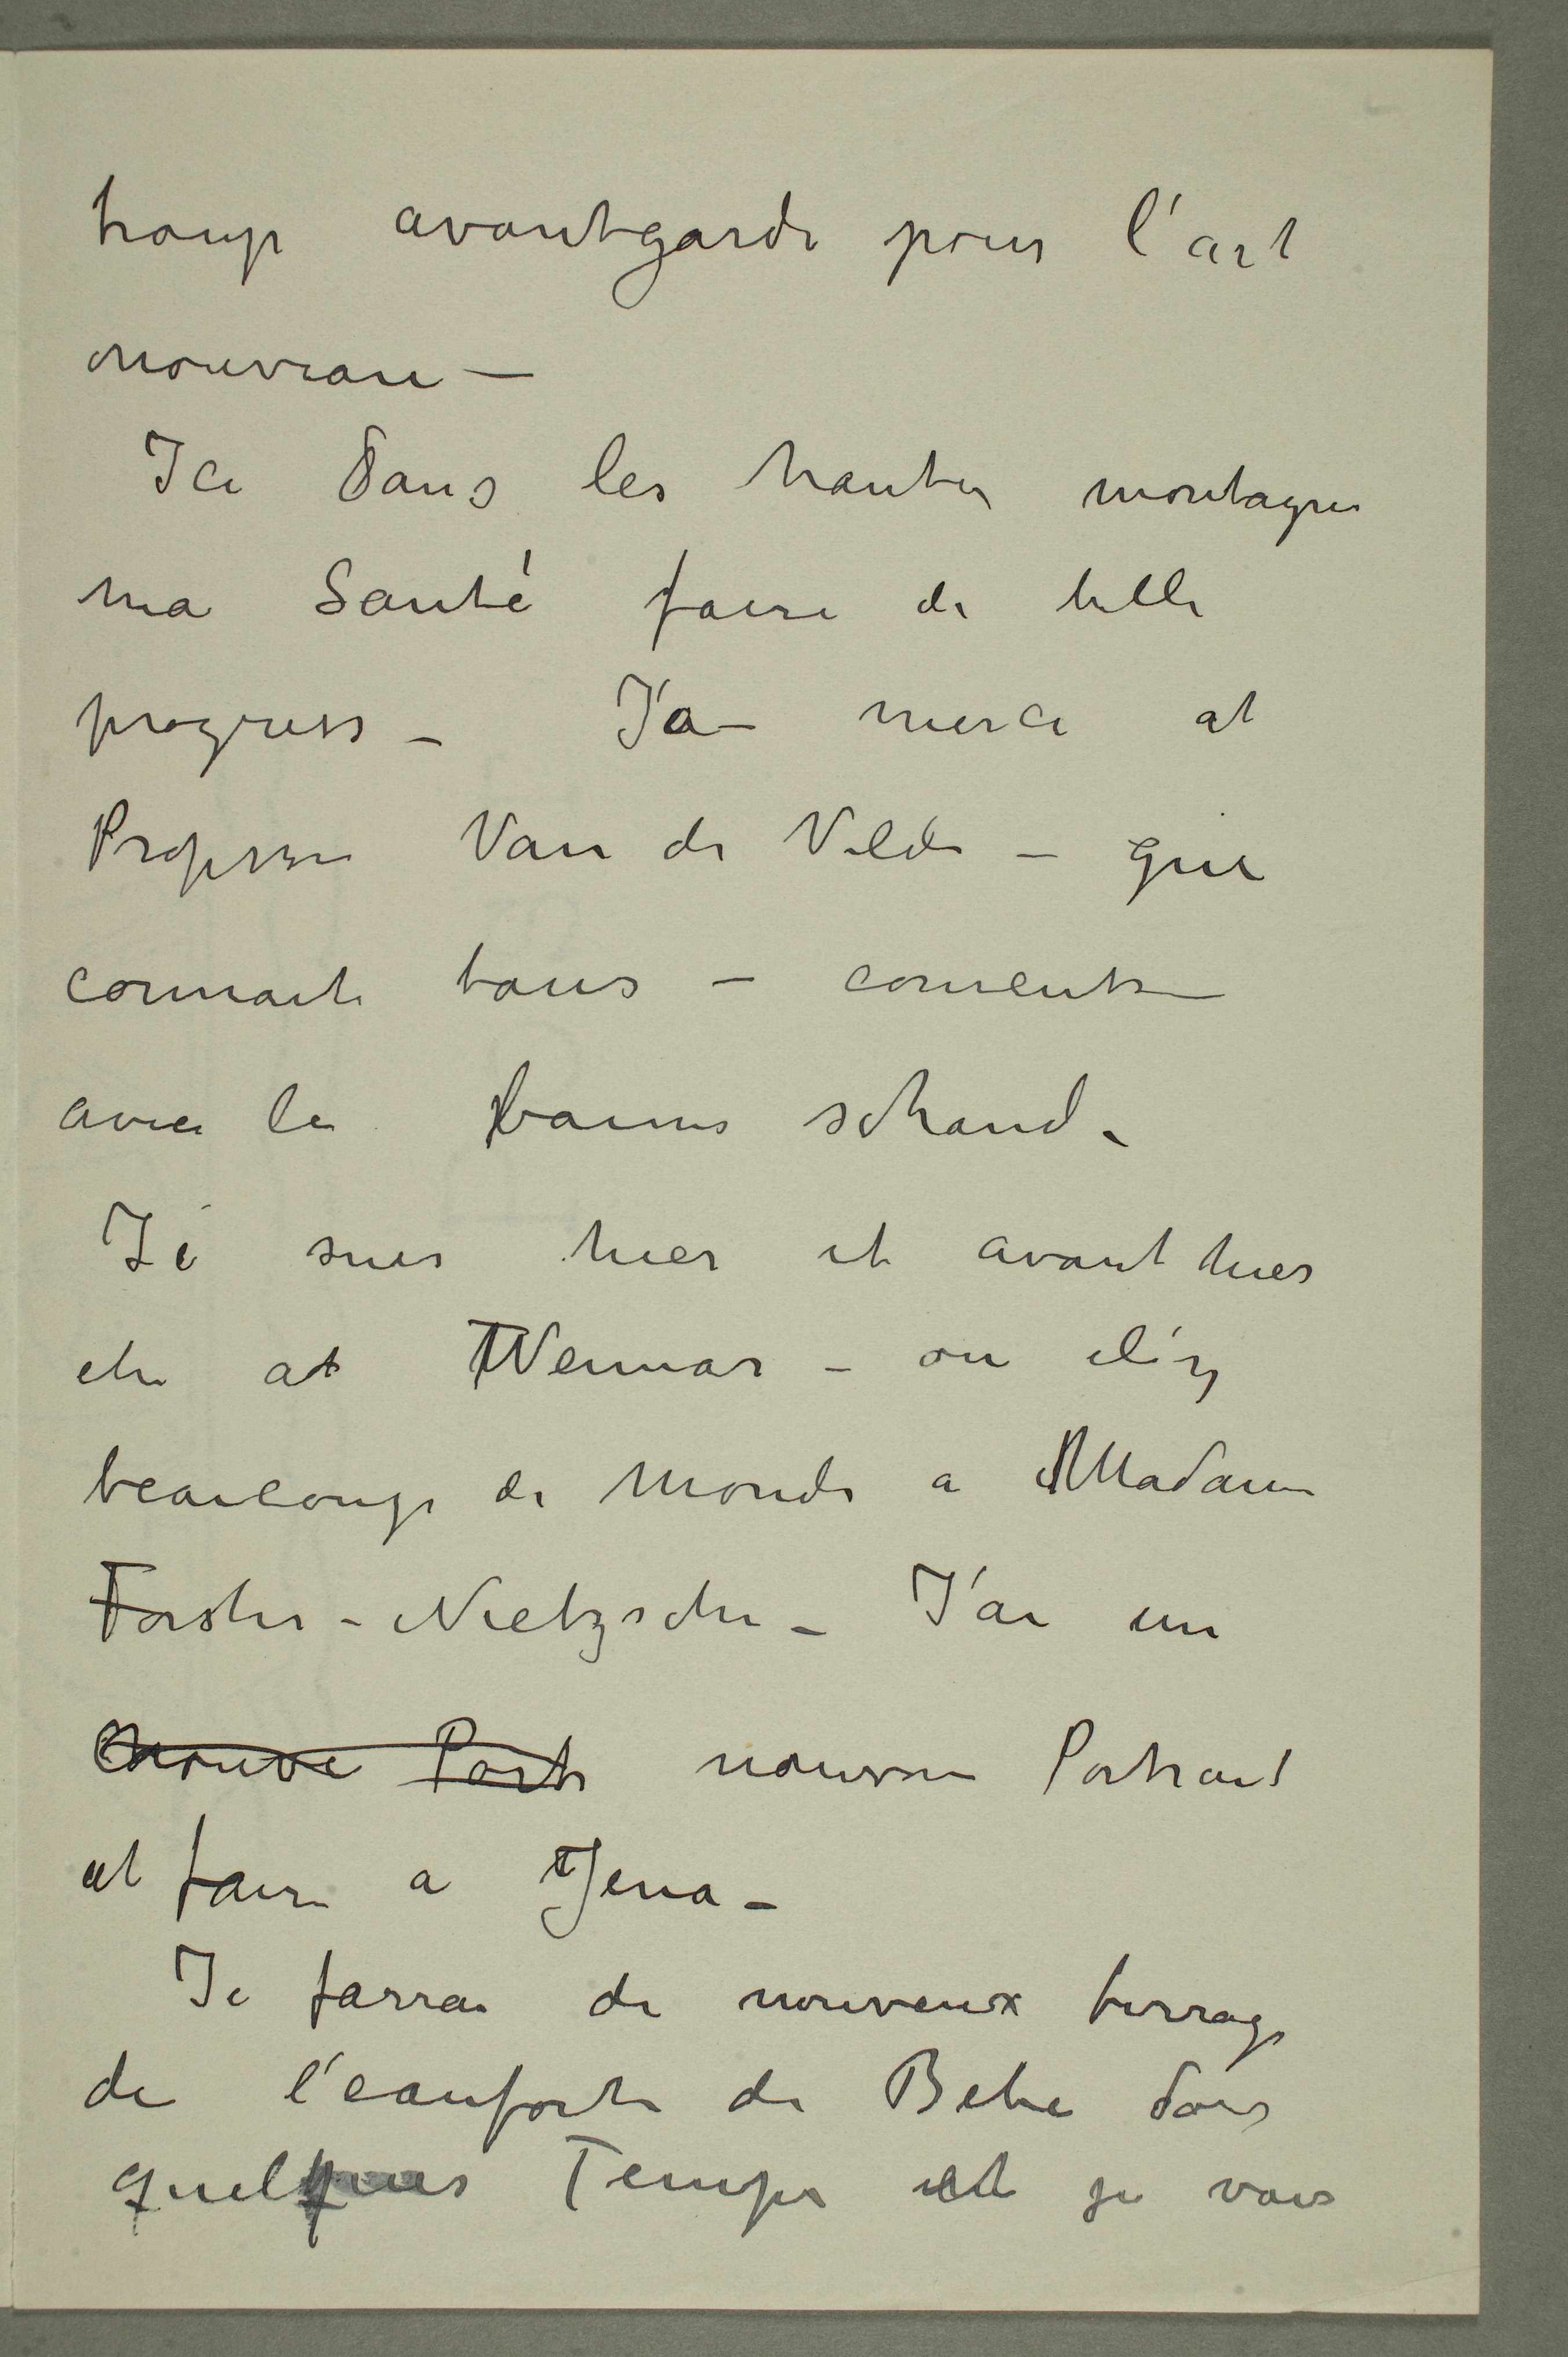 troupe avantgarde pour l'art
nouveau —
Ici dans les hautes montagnes
ma Santé faire de belle
progress — J'a merci at
Professer Van de Velde — qui
connaite tous —
avec le bains schaud.
Je suis hier et avant hier
ete at Weimar — ou il'y
beaucoup de Monde a Madame
Forster-Nietzsche — J'ai un
nouve Porte nouveau Portrait
at faire a Jena —
Je farrai de nouveux tirrage
de l'eauforte de Bebe dans
quelques Temps et je vais